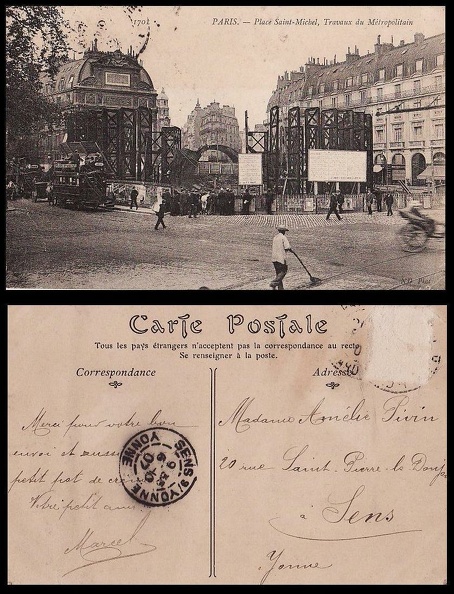 1701 PARIS. — Place Saint-Michel, Travaux du Métropolitain
ND Phot
Carte Postale
Tous les pays étrangers n'acceptent pas la correspondance au recto
Se renseigner à la poste.
Correspondance
Adresse
Merci pour votre bon
envoi et aussi
petit pot de
Votre petit ami
Marcel
SENS YONNE
Madame Amélie
20 rue Saint-Pierre-le
à Sens
Yonne